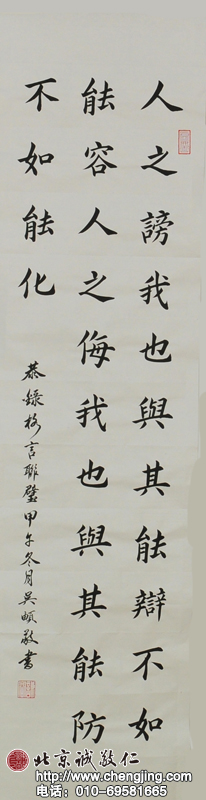 人之謗我也與其能辯不如
能容人之侮我也與其能防
不如能化
恭錄格言聯璧甲午冬月吳順敬書
北京诚敬仁
http://www.chengjing.com
电话：010-69581665